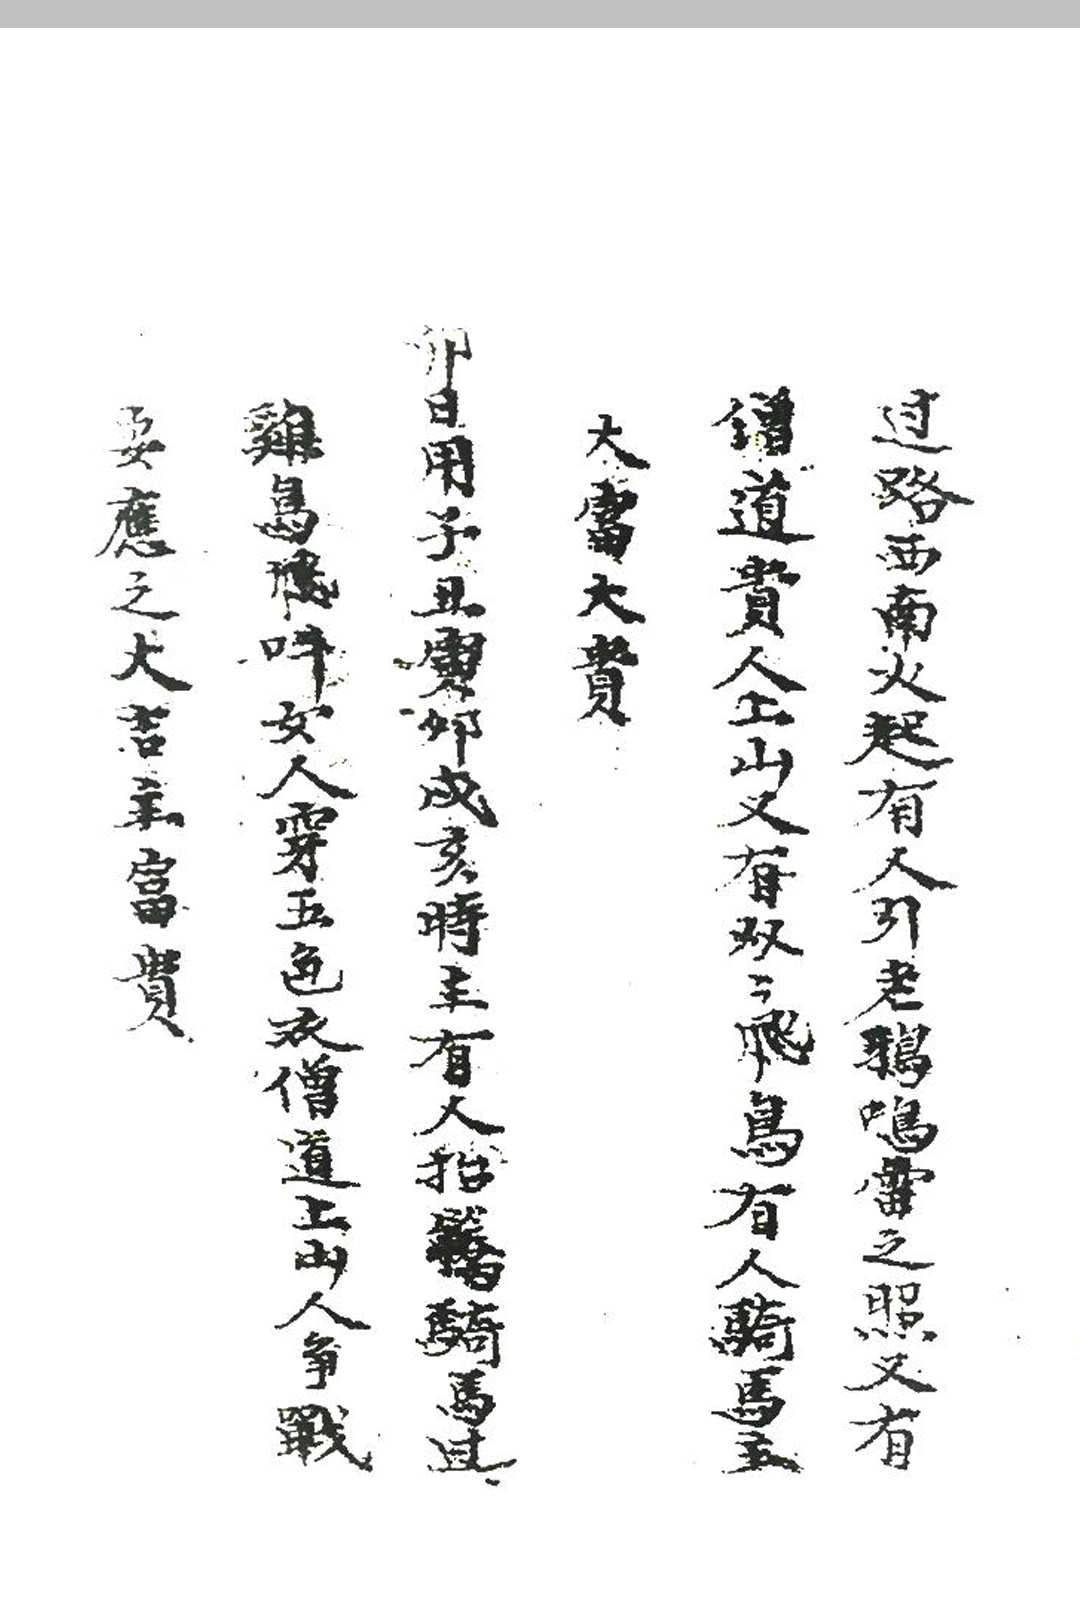 过路西南火起有人引老鴉鳴雷之照又有
僧道貴人上山又有双々飛鳥有人騎馬主
大富大貴
卯日用子丑寅卯戌亥時主有人抬轎騎馬过
雞鳥飛叫女人穿五色衣僧道上山人爭戰
要應之大吉主富貴